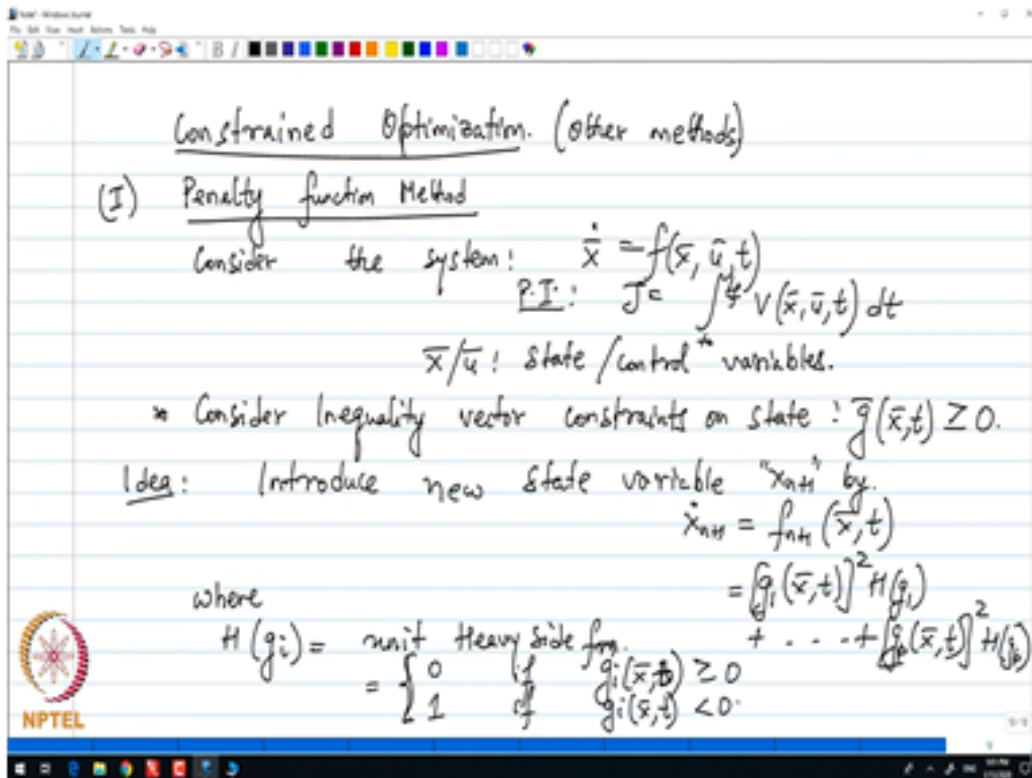 Constrained Optimization. (Other methods)
(I) Penalty function Method
Consider the system: ẋ̄ = f(x̄, ū, t)
P.I.: J = ∫_{t₀}^{t_f} V(x̄, ū, t) dt
x̄/ū: State/control variables.
* Consider Inequality vector constraints on state: ḡ(x̄,t) ≥ 0.
Idea: Introduce new state variable "x_{n+1}" by.
ẋ_{n+1} = f_{n+1}(x̄,t)
= [g₁(x̄,t)]² H(g₁)
+ . . . + [g_p(x̄,t)]² H(g_p)
where
H(gᵢ) = unit Heavy side fn.
= { 0 if gᵢ(x̄,t) ≥ 0
1 if gᵢ(x̄,t) < 0.
NPTEL